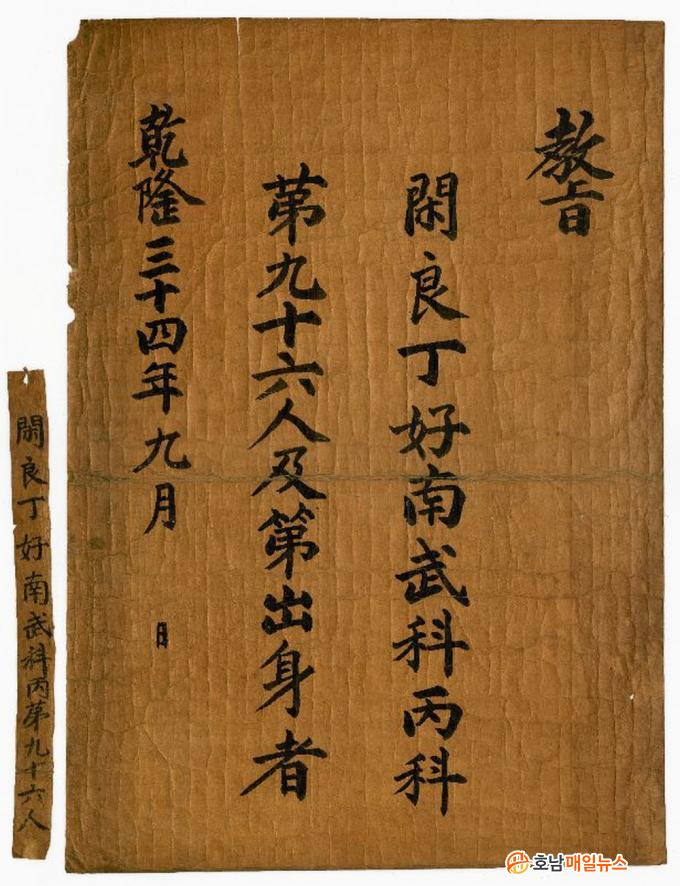 教旨
閑良丁好南武科丙科
苐九十六人及第出身者
乾隆三十四年九月 日
閑良丁好南武科丙苐九十六人
호남매일뉴스